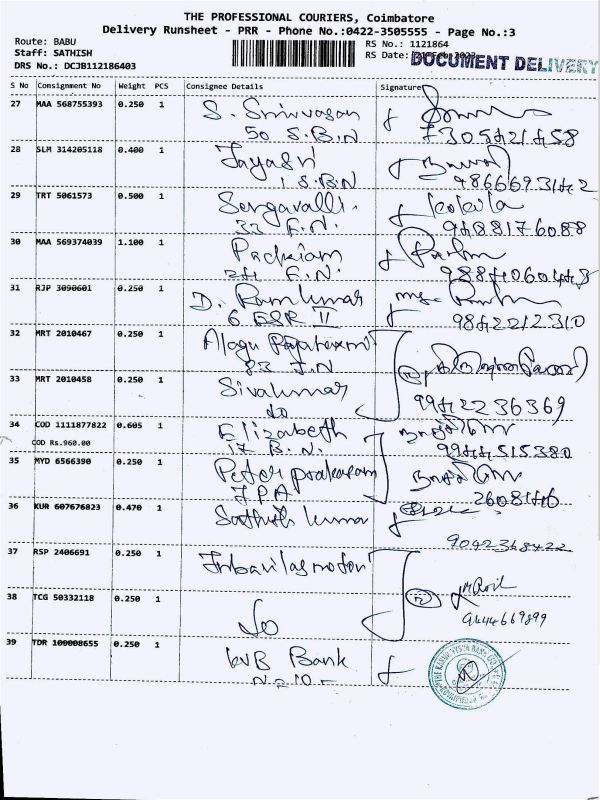 THE PROFESSIONAL COURIERS, Coimbatore
Delivery Runsheet - PRR - Phone No.:0422-3505555 - Page No.:3
Route: BABU
Staff: SATHISH
DRS No.: DCJB112186403
RS No.: 1121864
RS Date:
DOCUMENT DELIVERY
S No Consignment No Weight PCS Consignee Details Signature
27 MAA 568755393 0.250 1 S. Srinivasan
50 S.B.N 7305421458
28 SLM 314205118 0.400 1 Jayasri
1 S.B.N 9866693142
29 TRT 5061573 0.500 1 Sengavalli. Kokila
33 F.N. 9488176088
30 MAA 569374039 1.100 1 Pachaiam
F.N. 9884060448
31 RJP 3090601 0.250 1 D. Ramkumar
6 ESR II 9842212310
32 MRT 2010467 0.250 1 Alagu
83 J.N
33 MRT 2010458 0.250 1 Sivakumar
do 9942236369
34 COD 1111877822 0.605 1 Elizabeth
COD Rs.960.00 17 B.N. 9944515380
35 MYD 6566390 0.250 1 Peter prakasam
J.P.A 2608146
36 KUR 607676823 0.470 1 Sathish kumar
9042368422
37 RSP 2406691 0.250 1
38 TCG 50332118 0.250 1 Do 9444669899
39 TDR 100008655 0.250 1 KVB Bank